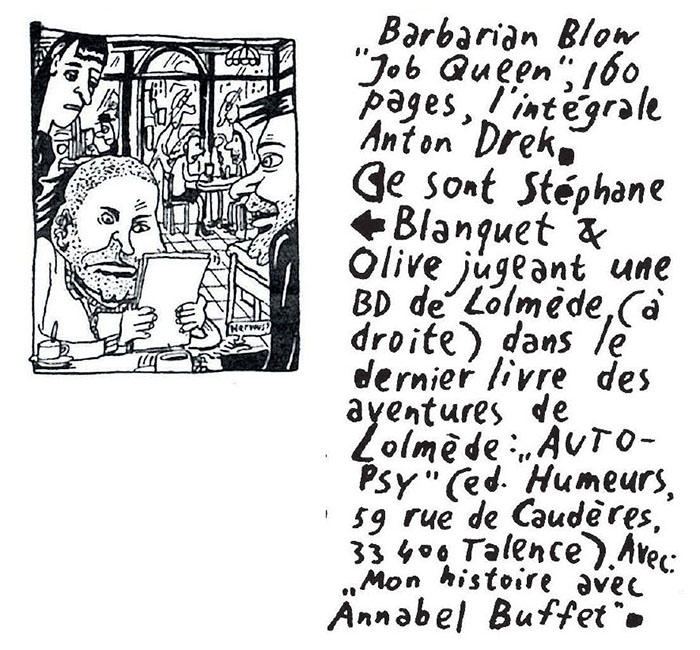 Barbarian Blow
"Job Queen", 160
pages, l'intégrale
Anton Drek.
Ce sont Stéphane
Blanquet &
Olive jugeant une
BD de Lolmède (à
droite) dans le
dernier livre des
aventures de
Lolmède: „AUTO-
PSY" (ed. Humeurs,
59 rue de Caudères,
33 400 Talence). Avec:
„Mon histoire avec
Annabel Buffet".
Nerveus!